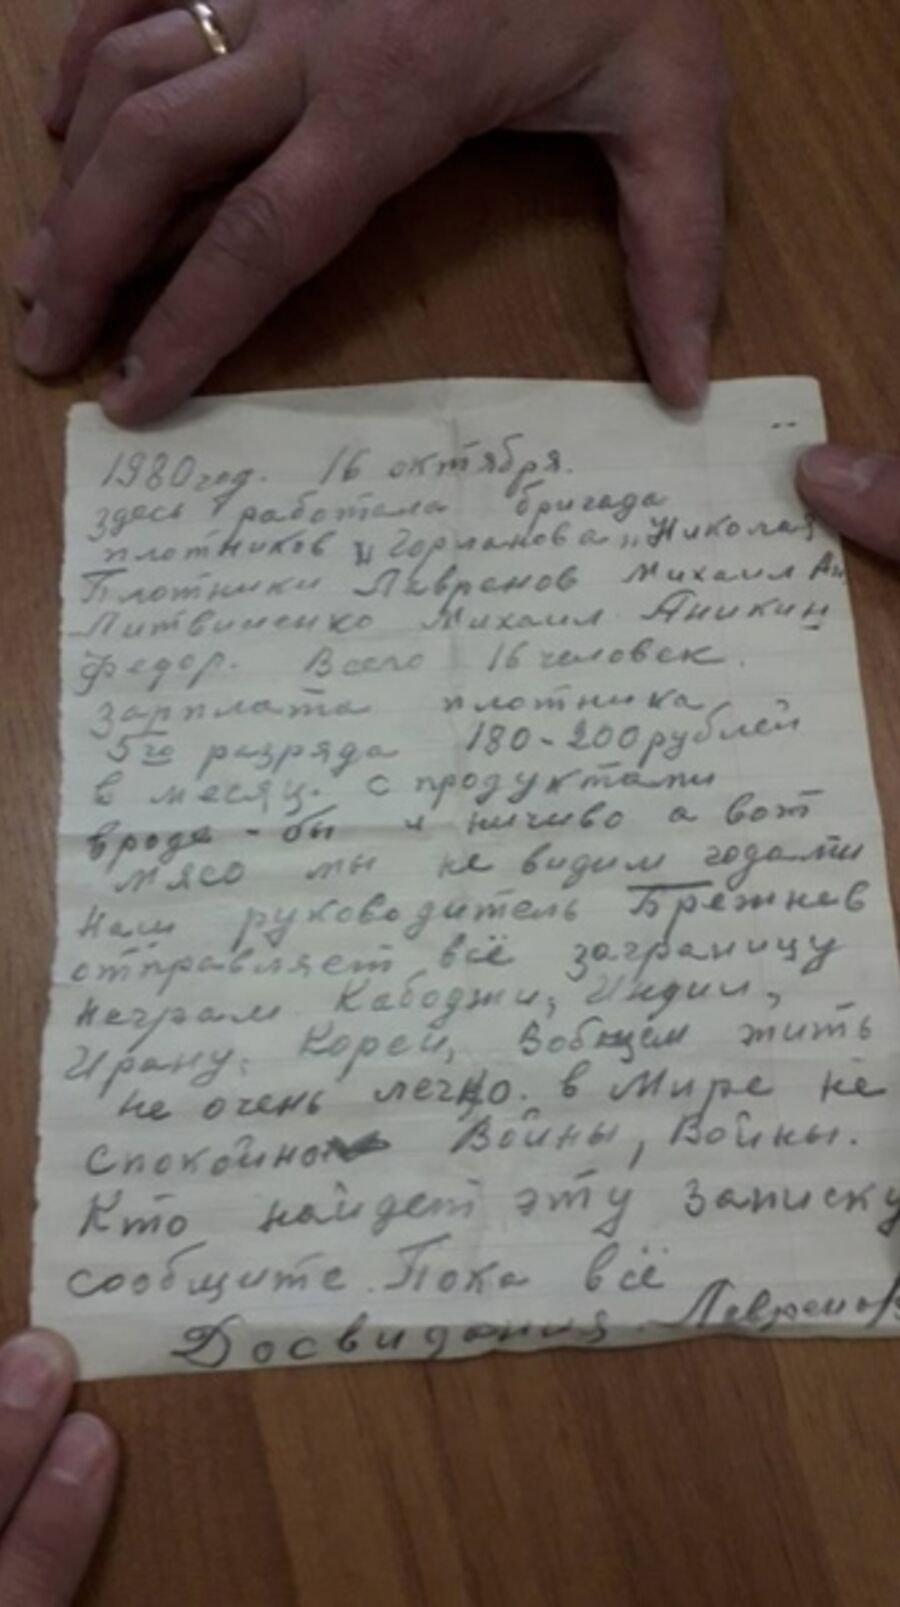 1980 год. 16 октября.
здесь работала бригада
плотников „Горланова„ Николая
Плотники Лавренов Михаил Ан
Литвиненко Михаил Аникин
Федор. Всего 16 человек.
зарплата плотника
5го разряда 180-200 рублей
в месяц. с продуктами
вроде-бы и ничиво а вот
мясо мы не видим годами
наш руководитель Брежнев
отправляет всё заграницу
неграм Кабоджи, Индии,
Ирану, Кореи, Вобщем жить
не очень легко. в Мире не
спокойно Войны, Войны.
Кто найдет эту записку
сообщите. Пока всё
Досвидания. Лавренов